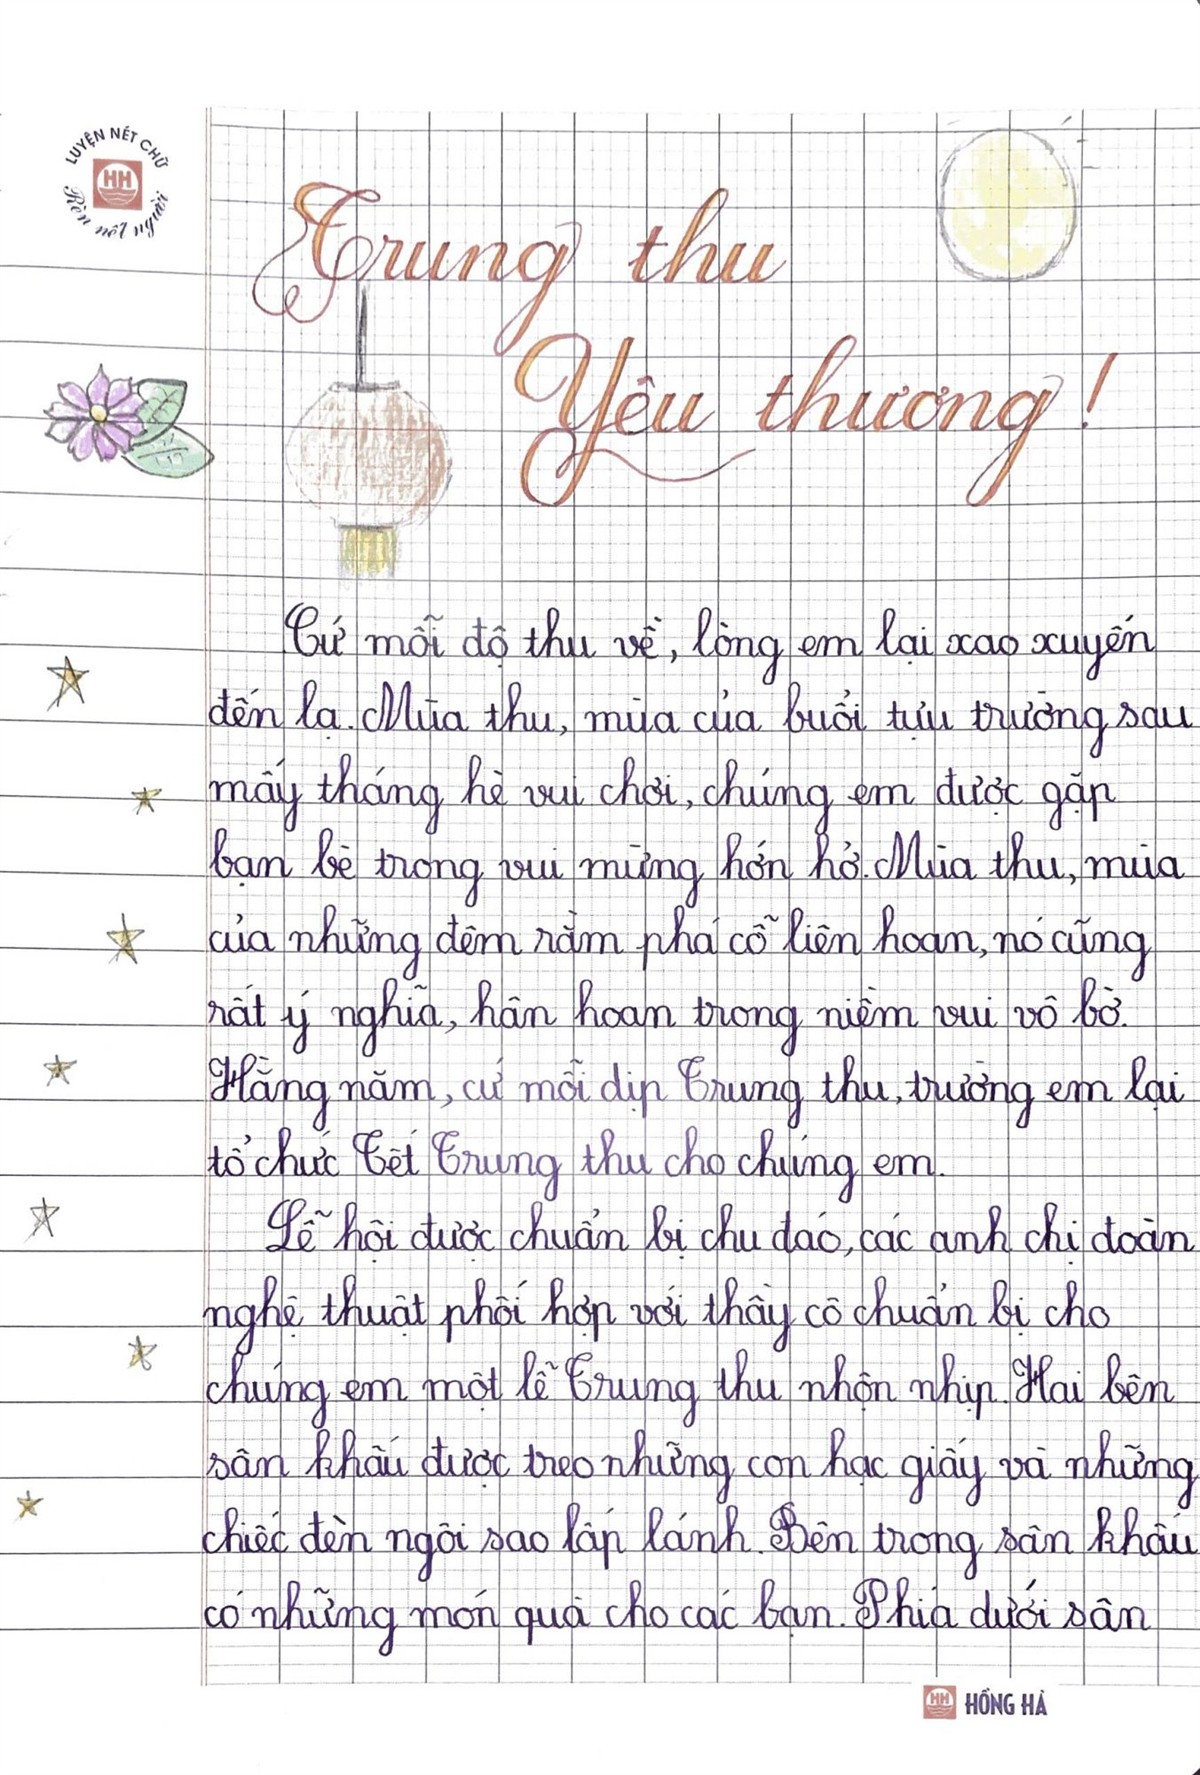 LUYỆN NÉT CHỮ
HH
Rèn nết người
Trung thu
Yêu thương!
Cứ mỗi độ thu về, lòng em lại xao xuyến
đến lạ. Mùa thu, mùa của buổi tựu trường sau
mấy tháng hè vui chơi, chúng em được gặp
bạn bè trong vui mừng hớn hở. Mùa thu, mùa
của những đêm rằm phá cỗ liên hoan, nó cũng
rất ý nghĩa, hân hoan trong niềm vui vô bờ.
Hằng năm, cứ mỗi dịp Trung thu, trường em lại
tổ chức Tết Trung thu cho chúng em.
Lễ hội được chuẩn bị chu đáo, các anh chị đoàn
nghệ thuật phối hợp với thầy cô chuẩn bị cho
chúng em một lễ Trung thu nhộn nhịp. Hai bên
sân khấu được treo những con hạc giấy và những
chiếc đèn ngôi sao lấp lánh. Bên trong sân khấu
có những món quà cho các bạn. Phía dưới sân
HH HỒNG HÀ